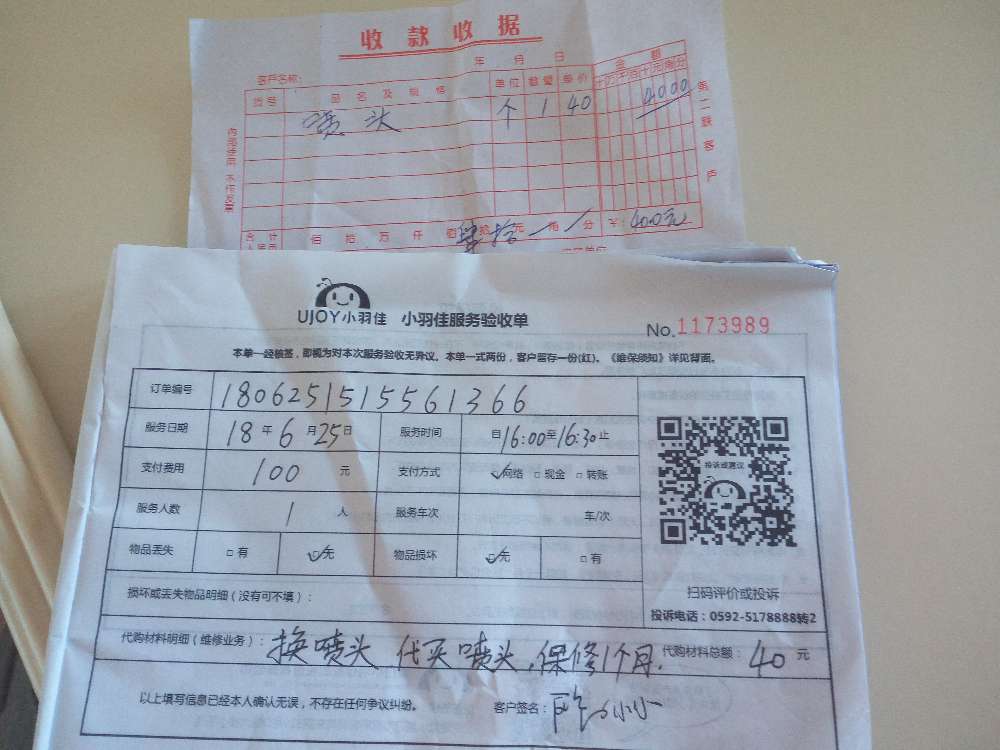 收款收据
年 月 日
客户名称:
金额
货号 品名及规格 单位 数量 单价 十万千百十元角分
喷头 个 1 40 4000
内部使用 不作发票
第二联客户
合计 佰 拾 万 仟 佰 肆拾元 角 分 ¥: 40.0元
UJOY小羽佳 小羽佳服务验收单
No. 1173989
本单一经核签，即视为对本次服务验收无异议。本单一式两份，客户留存一份(红)。《维保须知》详见背面。
订单编号 1806251515561366
服务日期 18年6月25日 服务时间 自16:00至16:30止
支付费用 100 元 支付方式 网络 □现金 □转账
投诉或建议
服务人数 1 人 服务车次 车/次
物品丢失 □有 无 物品损坏 无 □有
扫码评价或投诉
损坏或丢失物品明细（没有可不填）：
投诉电话：0592-5178888转2
代购材料明细（维修业务）： 换喷头 代买喷头,保修1个月. 代购材料总额： 40 元
以上填写信息已经本人确认无误，不存在任何争议纠纷。 客户签名：